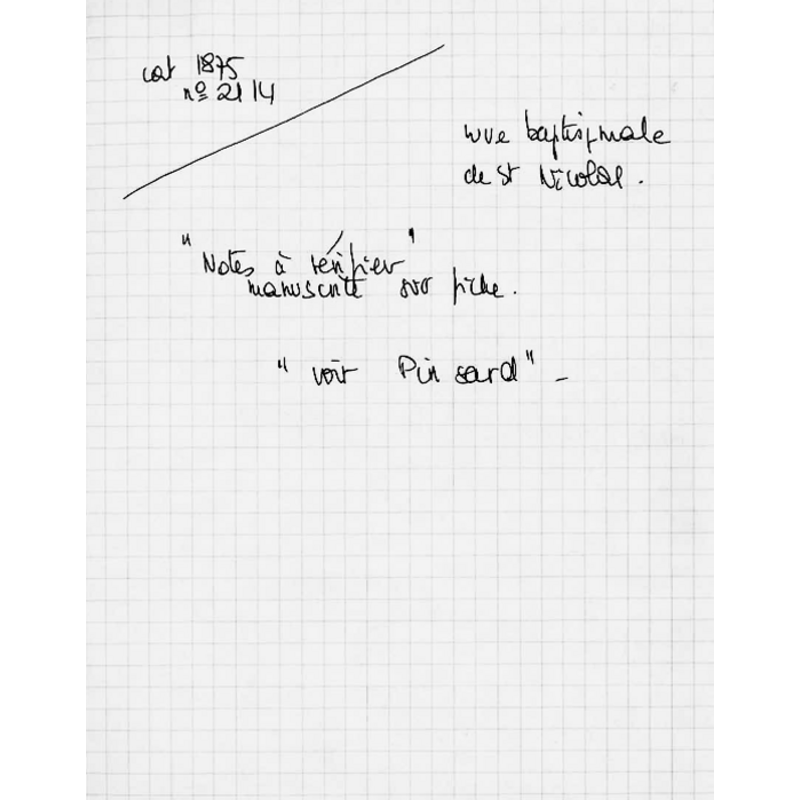 cat 1875
nº 2114
cuve baptismale
de St Nicolas.
"Notes à vérifier"
manuscrite sur fiche.
"voir Pinsard" -